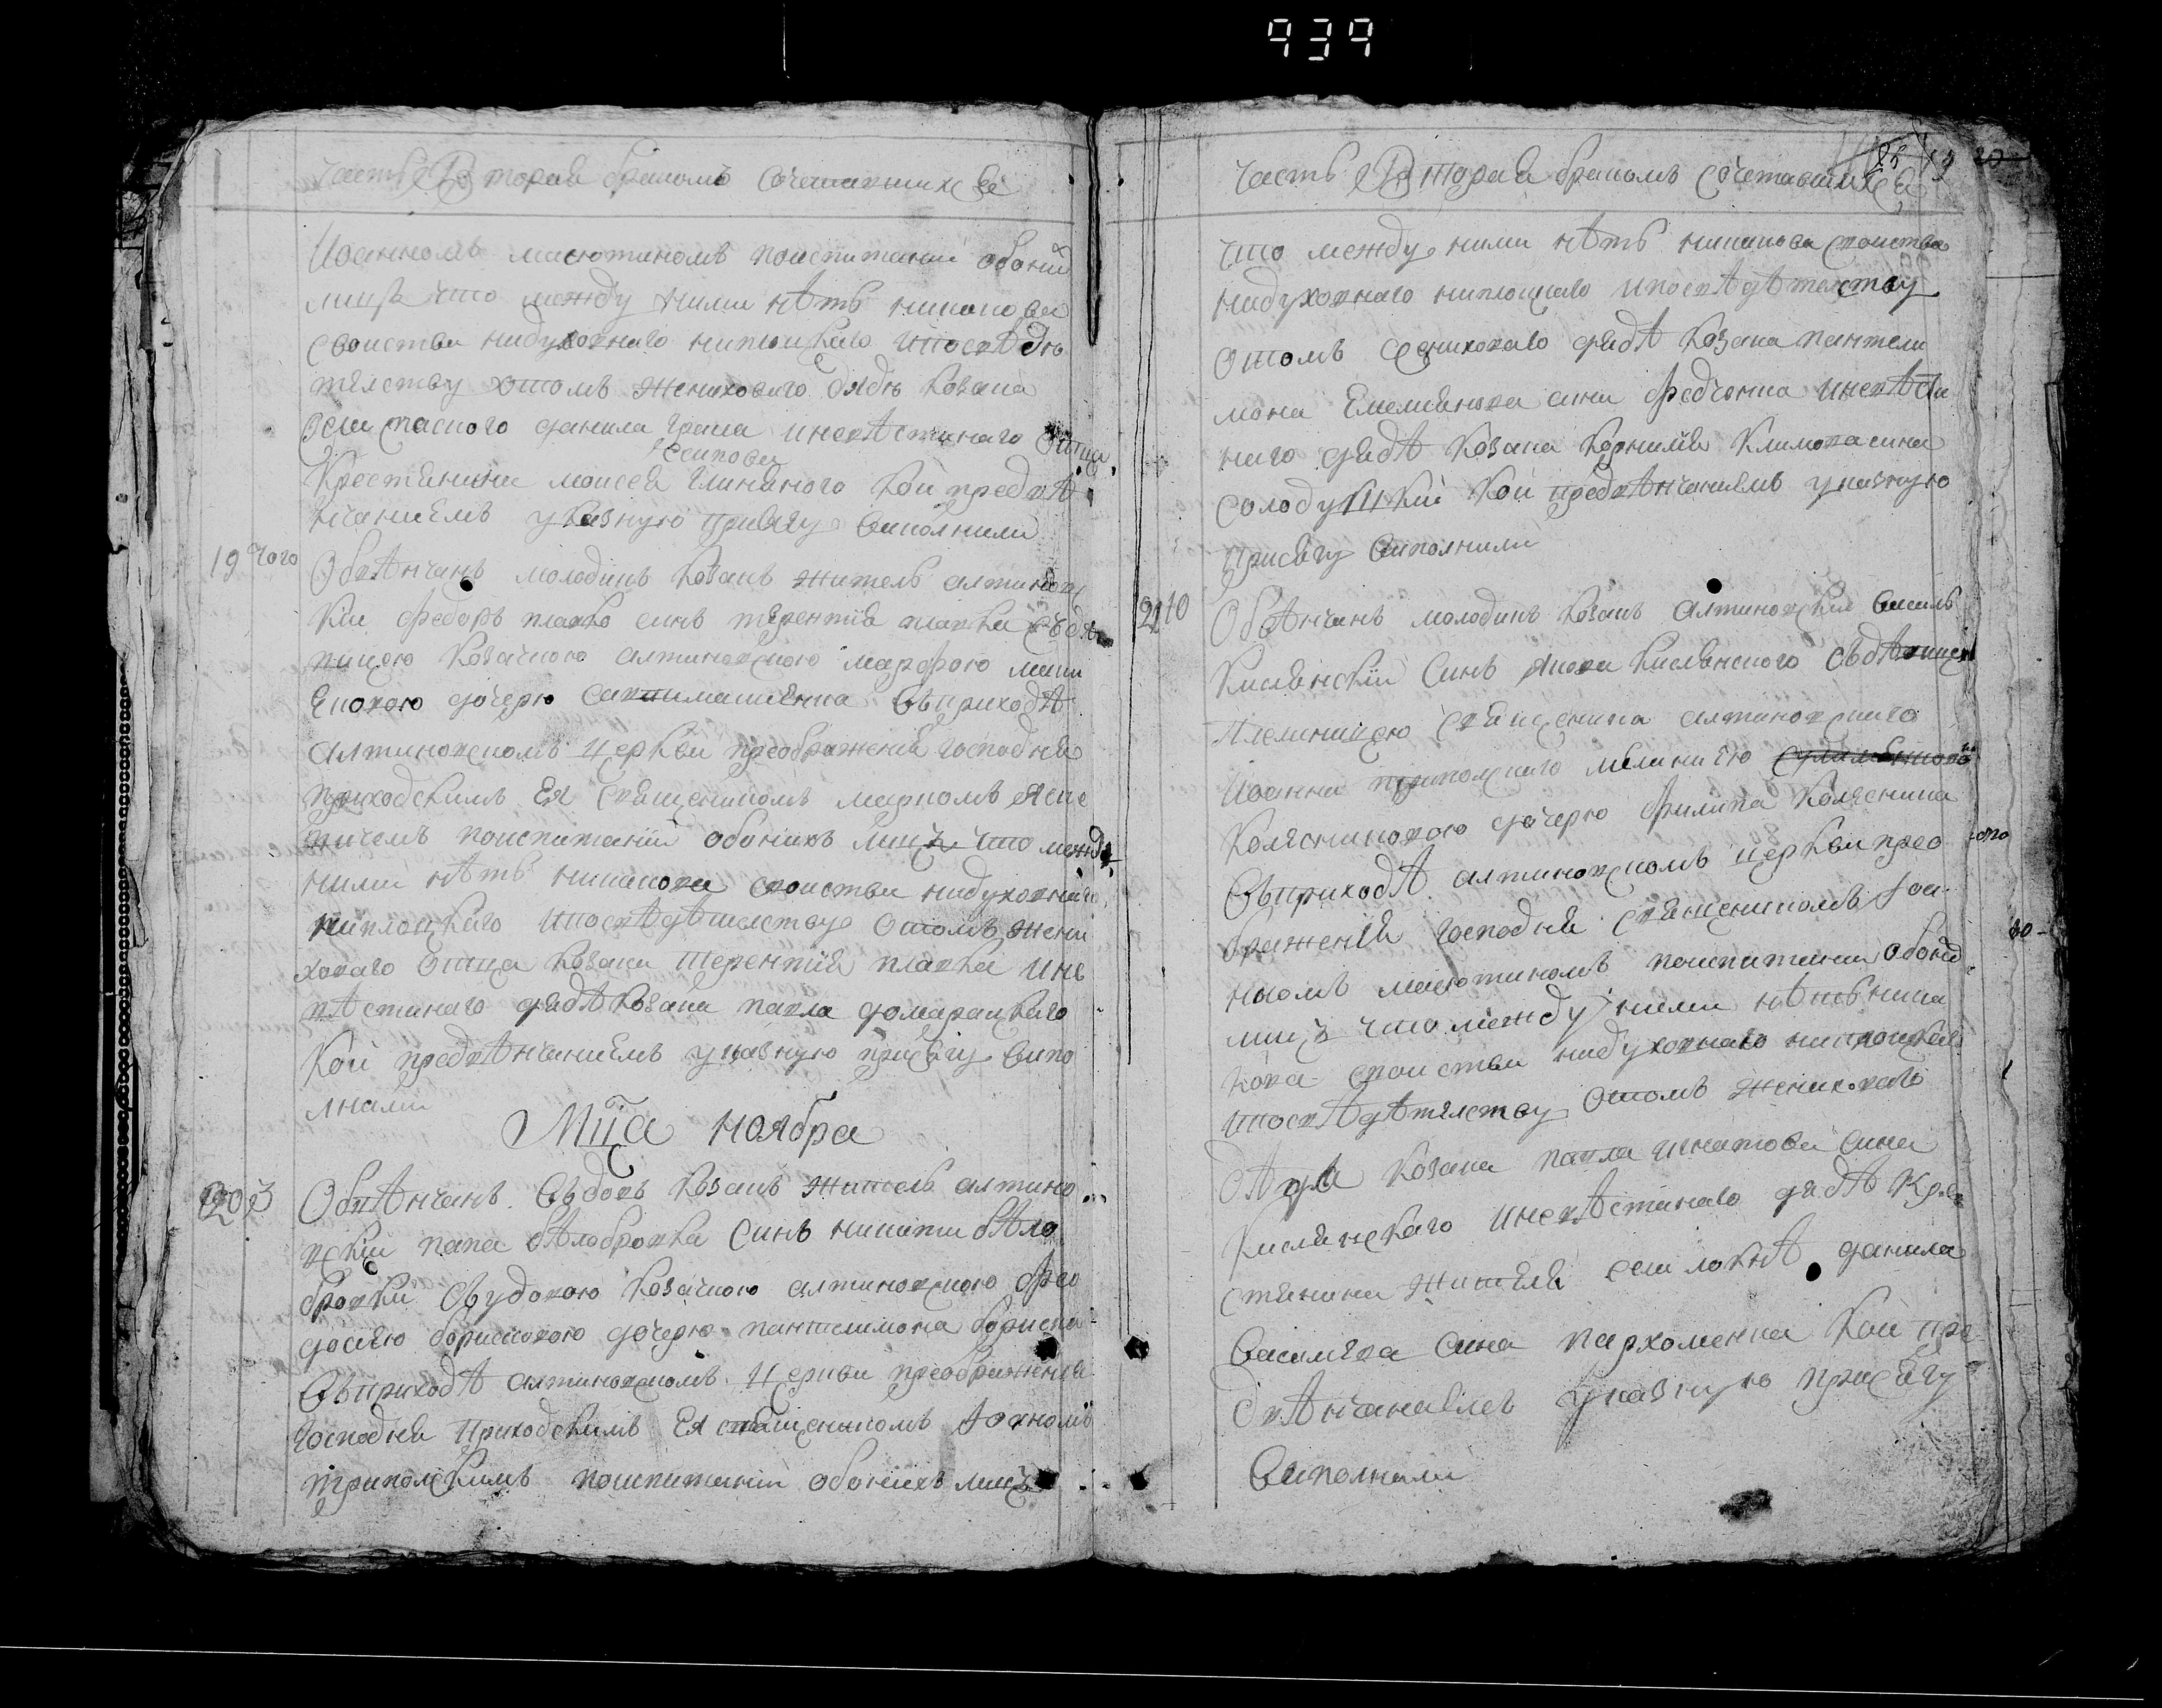 939
Часть Вторая бракомъ сочетавшихся
Иоанномъ масютиномъ поиспитании обоихъ
лицъ что между ними нѣтъ никакова
своиства нидуховнаго ниплоцкаго ипосвѣдѣ
телству отомъ жениховаго дядѣ козака
данила грама иневѣстинаго отца
Есипова
Крестянина моисея глиняного кои предвѣ
нчаниемъ указную присягу виполнили
19 Того Обвѣнчанъ молодикъ козакъ житель алтиновс
кии федоръ плавко синъ терентия плавка здѣ
вицею козачкою алтиновскою марфою
дочерю вприходѣ
алтиновскомъ церкви преображения господня
приходскимъ Ея священикомъ маркомъ
вичемъ поиспитании обоихъ лицъ что межд
ними нѣтъ никакова своиства нидуховнаго
ниплоцкаго ипосвѣдѣтелству отомъ жени
ховаго отца козака терентия плавка ине
вѣстинаго дядѣ козака павла домарацкаго
кои предвѣнчаниемъ указную присягу випо
лнили
Мца ноября
20 3 Обвѣнчанъ вдовъ козакъ житель алтино
вскии сава бѣлобровка синъ никити бѣло
бровки звудовою козачкою алтиновскою фео
досиею борисковою дочерю пантелимона бориска
вприходѣ алтиновскомъ церкви преображения
господня приходскимъ Ея священикомъ Іоаномъ
триполскимъ поиспитании обоихъ лицъ
Часть Вторая бракомъ сочетавшихся
85
что между ними нѣтъ никакова своиства
нидуховнаго ниплоцкаго ипосвѣдѣтелству
отомъ жениховаго дядѣ козака пантели
мона Емелянова сина федченка иневѣсти
наго дядѣ козака корнилия климова сина
солодушкии кои предвѣнчаниемъ указную
присягу виполнили
21 10 Обвѣнчанъ молодикъ козакъ алтиновскии василь
кислянскии синъ якова кислянского здѣвицею
племяницею священика алтиновскаго
Иоанна триполскаго меланиею
колясниковою дочерю филипа колясника
вприходѣ алтиновскомъ церкви прео
бражения господня священикомъ Іоа
нномъ масютиномъ поиспитании обоих
лицъ что между ними нѣтъ ника
кова своиства нидуховнаго ниплоцкаго
ипосвѣдѣтелству отомъ жениховаго
дяди козака павла игнатова сина
кислянскаго иневѣстинаго дядѣ кре
стянина жителя села данила
василева сина пархоменка кои пре
двѣнчаниемъ указную присягу
виполнили